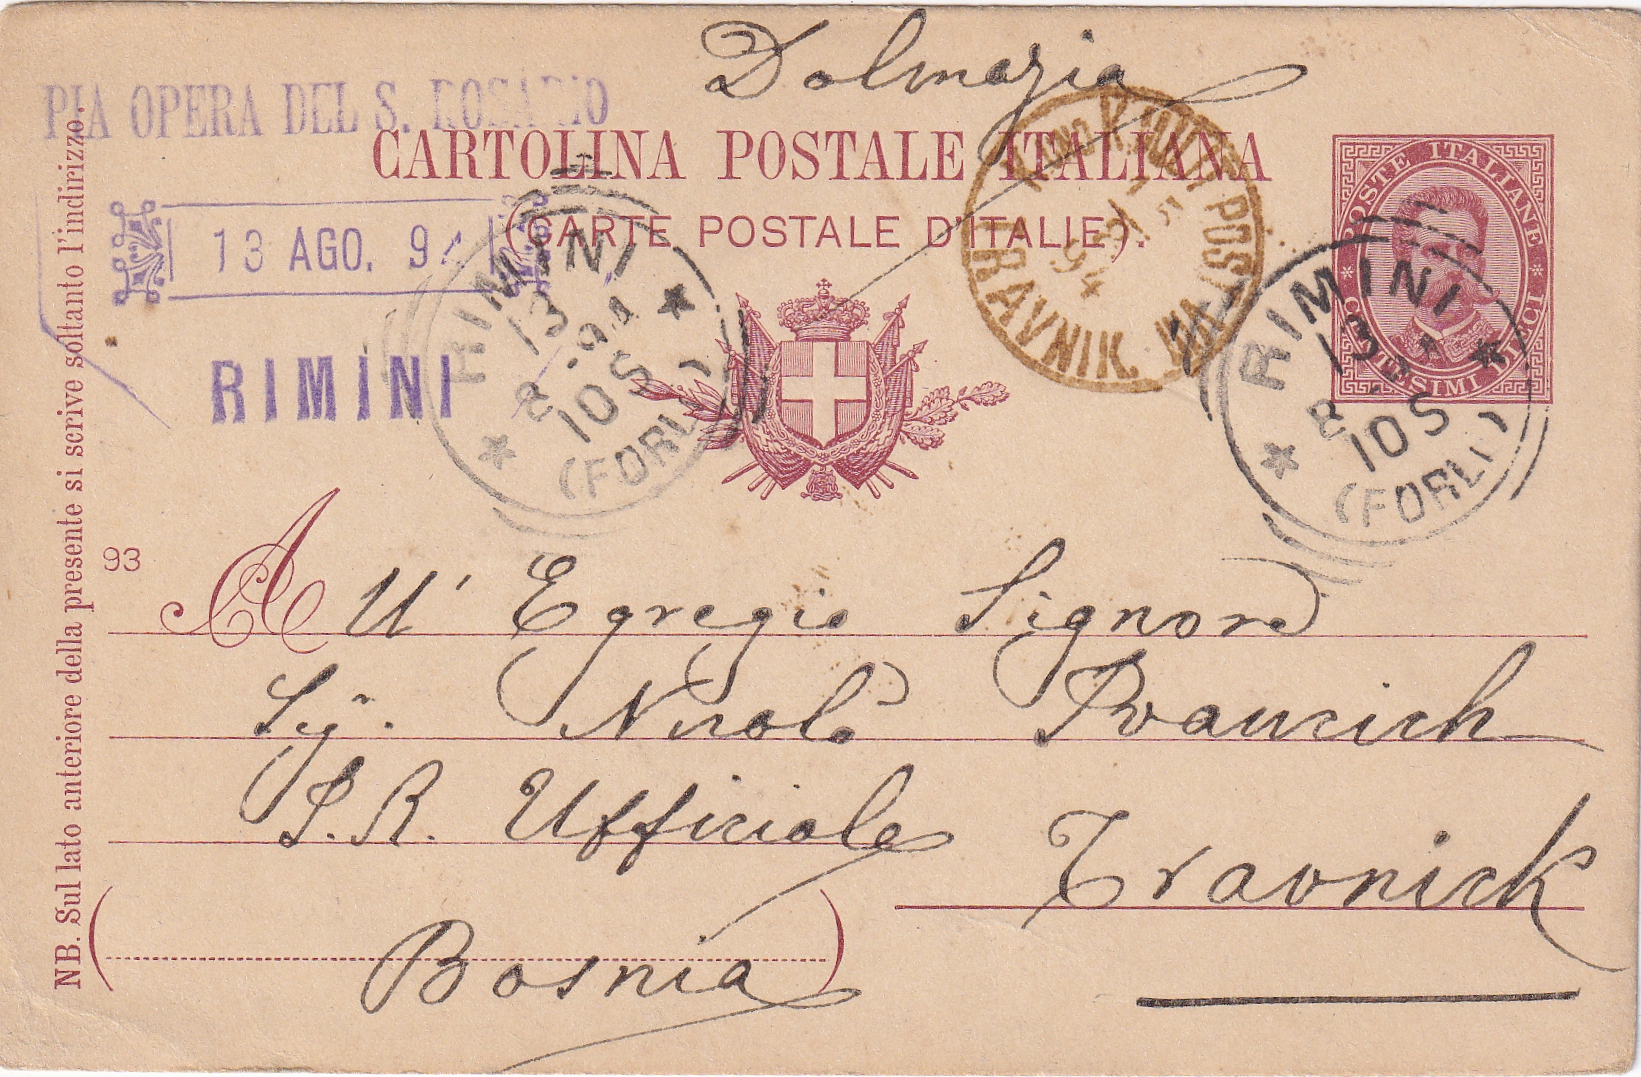 Dalmazia
PIA OPERA DEL S. ROSARIO
CARTOLINA POSTALE ITALIANA
(CARTE POSTALE D'ITALIE).
13 AGO. 94
RIMINI
RIMINI
13
8 - 94
10S
(FORLI)
K. UND K. MILIT. POST
94
TRAVNIK
POSTE ITALIANE
RIMINI
13
8 - 94
10S
(FORLI)
NB. Sul lato anteriore della presente si scrive soltanto l'indirizzo.
93
A ll' Egregio Signore
Sigr. Nicolò
I. R. Ufficiale
Travnick
(Bosnia)